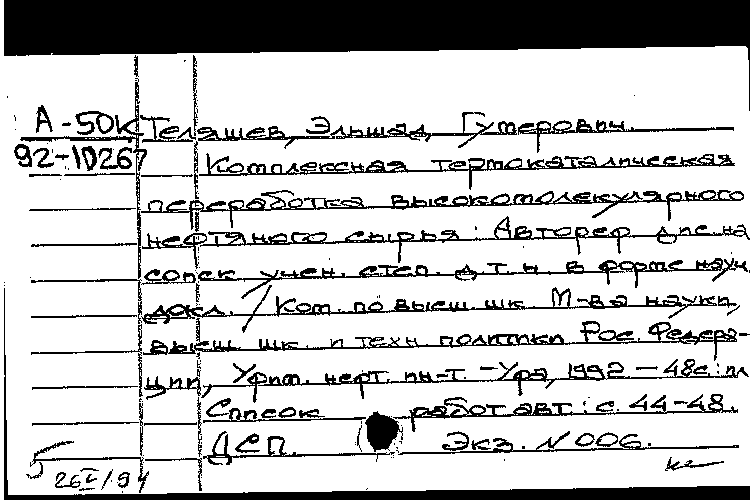 А-50К Теляшев, Эльшад Гумерович.
92-10267 Комплексная термокаталическая
переработка высокомолекулярного
нефтяного сырья : Автореф дис. на
соиск учен. степ. д. т. н. в форме науч
докл. / Ком. по высш. шк М-ва науки,
высш. шк. и техн политики Рос. Федера-
ции, Уфим. нефт. ин-т. - Уфа, 1992 - 48с.: ил
Список работ авт: с. 44-48.
ДСП. Экз. N 006.